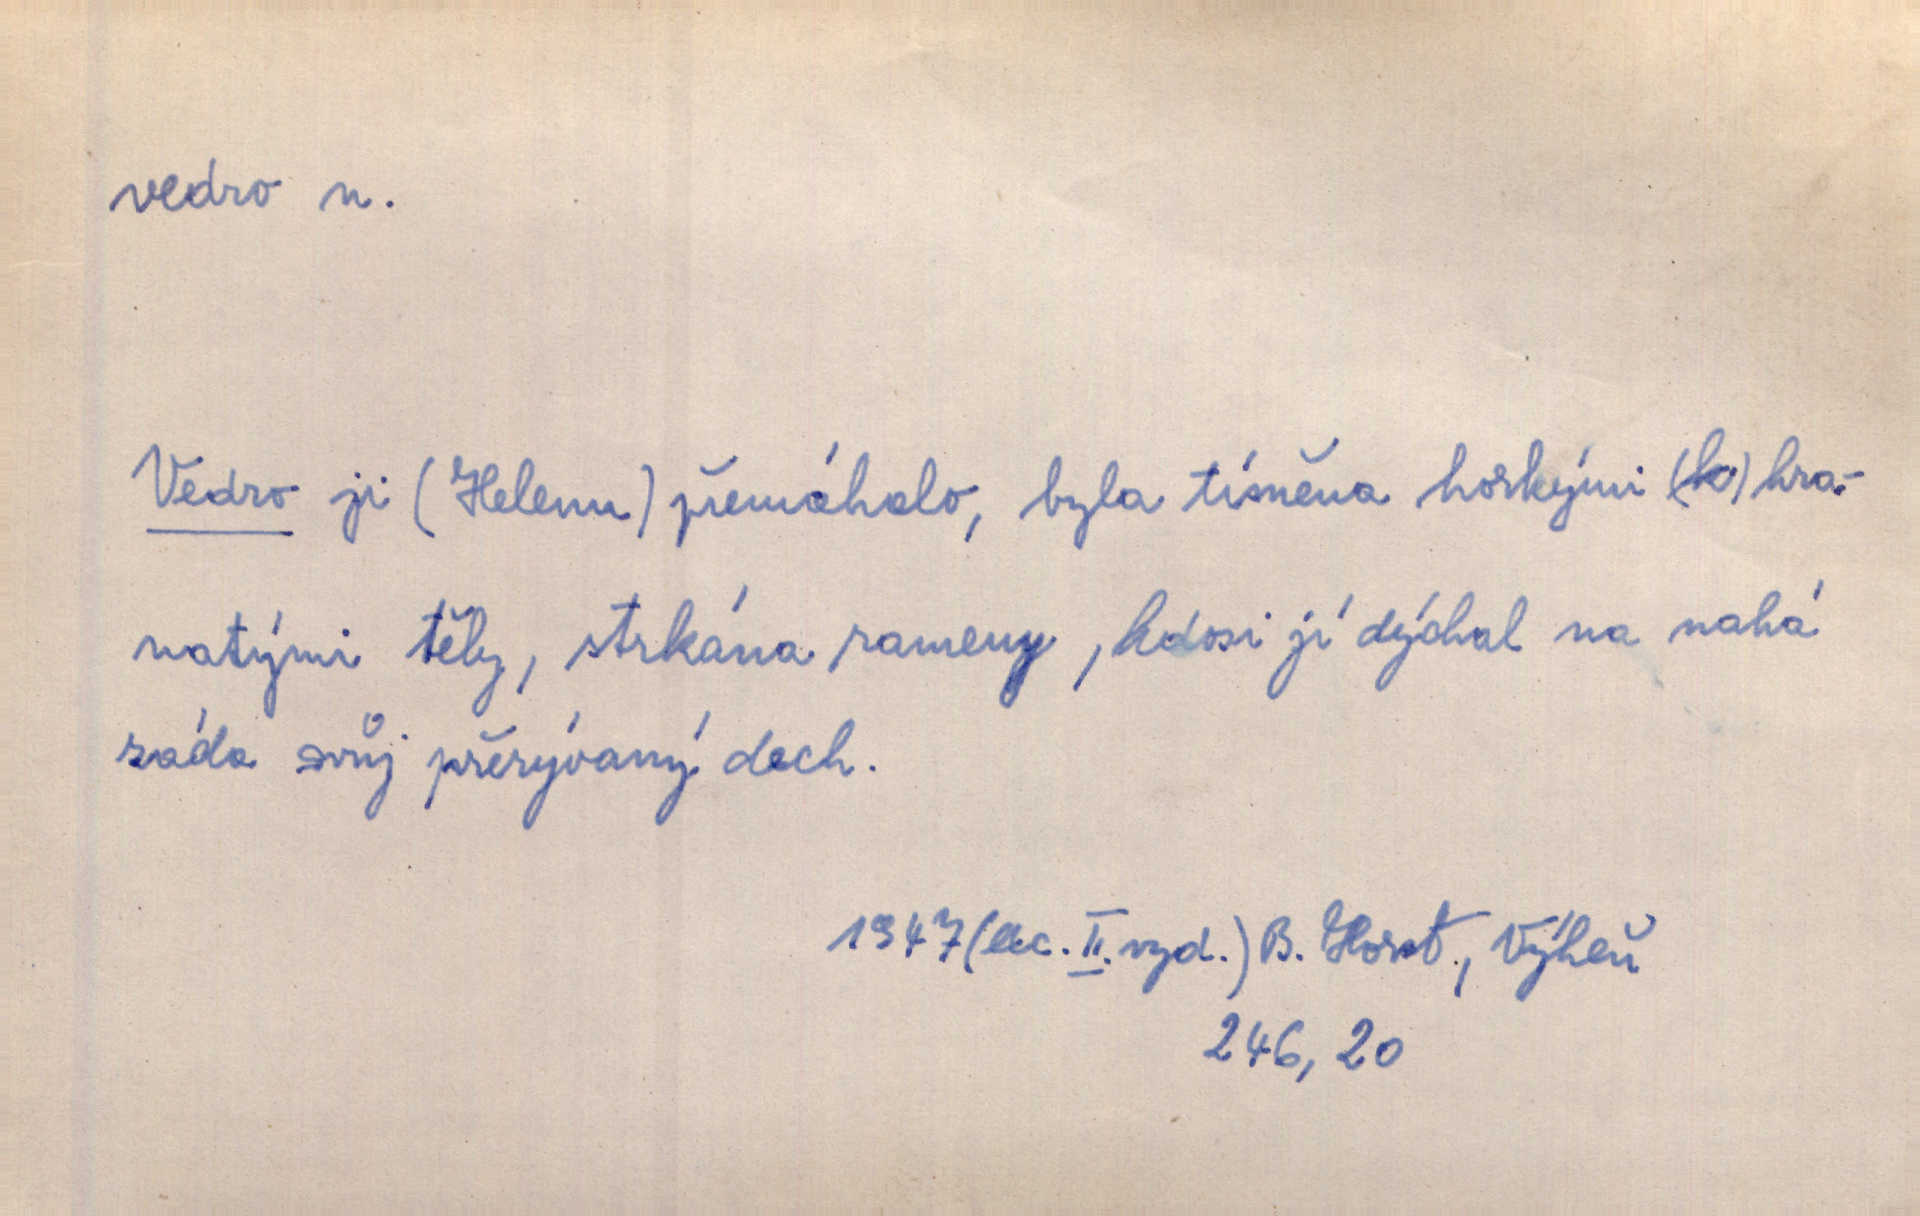 vedro n.
Vedro ji (Helenu) přemáhalo, byla tísněna horkými (a) hra-
natými těly, strkána rameny, kdosi jí dýchal na nahá
záda svůj přerývaný dech.
1947 (exc. II. vyd.) B. Horst, Výheň
246, 20